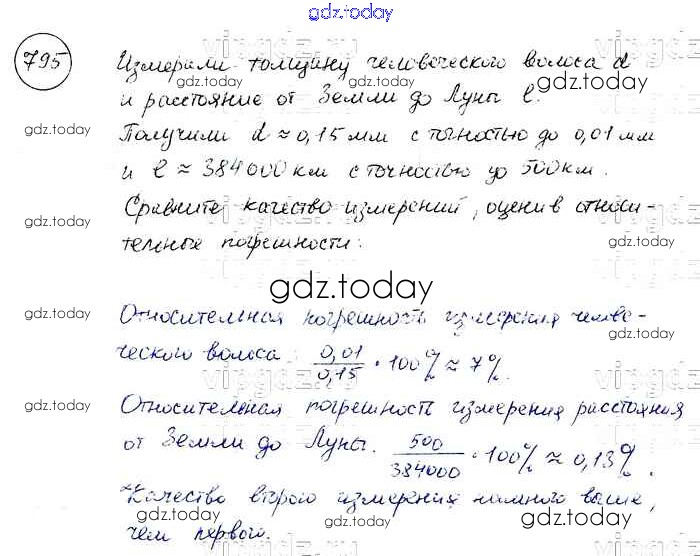 gdz.today
795
Измерили толщину человеческого волоса d
и расстояние от Земли до Луны l.
Получили d ≈ 0,15 мм с точностью до 0,01 мм
и l ≈ 384000 км с точностью до 500 км.
Сравните качество измерений, оценив относи-
тельные погрешности.
gdz.today
Относительная погрешность измерения челове-
ческого волоса: 0,01/0,15 · 100% ≈ 7%.
Относительная погрешность измерения расстояния
от Земли до Луны. 500/384000 · 100% ≈ 0,13%.
Качество второго измерения намного выше,
чем первого.